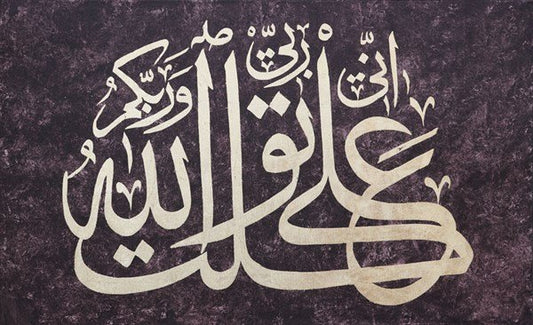 انّي توكلت على الله ربّي وربّكم